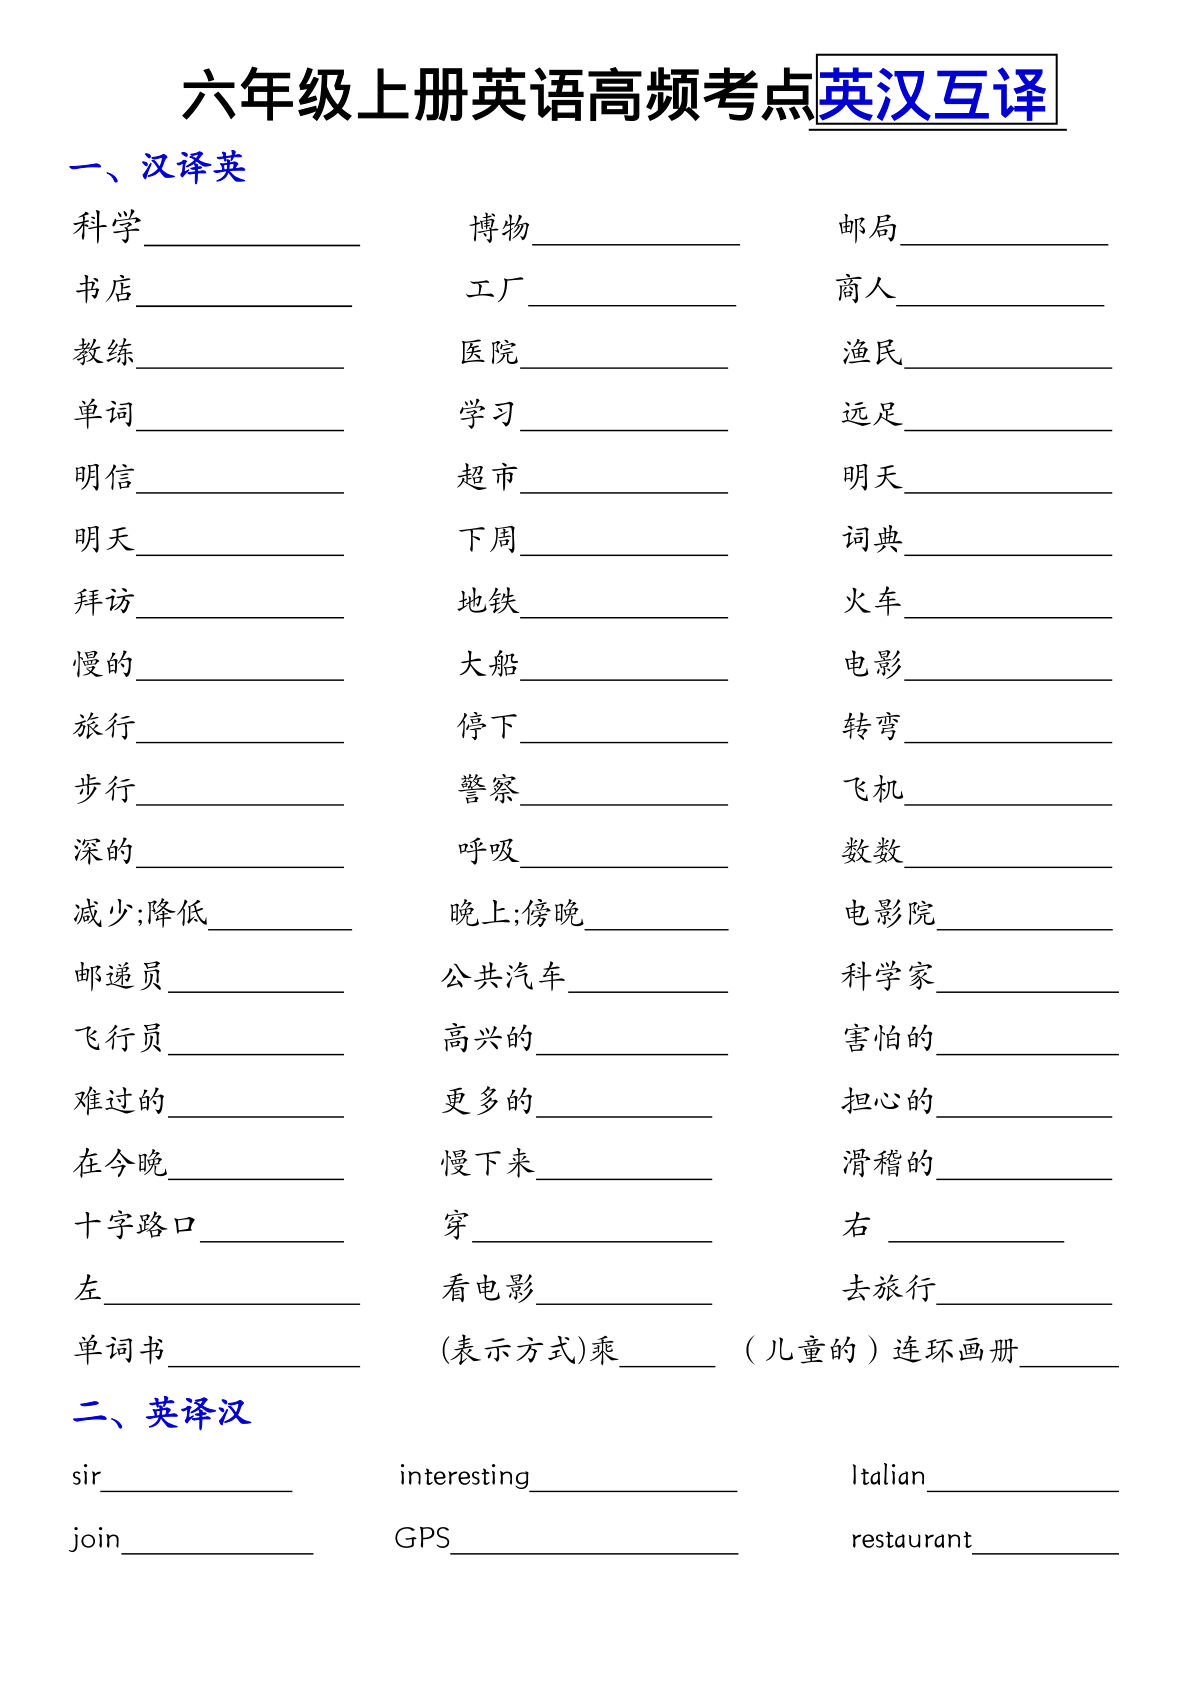 六年级上册英语高频考点英汉互译
一、汉译英
科学____________ 博物____________ 邮局____________
书店____________ 工厂____________ 商人____________
教练____________ 医院____________ 渔民____________
单词____________ 学习____________ 远足____________
明信____________ 超市____________ 明天____________
明天____________ 下周____________ 词典____________
拜访____________ 地铁____________ 火车____________
慢的____________ 大船____________ 电影____________
旅行____________ 停下____________ 转弯____________
步行____________ 警察____________ 飞机____________
深的____________ 呼吸____________ 数数____________
减少;降低_________ 晚上;傍晚_________ 电影院___________
邮递员___________ 公共汽车__________ 科学家___________
飞行员___________ 高兴的____________ 害怕的___________
难过的___________ 更多的___________ 担心的___________
在今晚___________ 慢下来___________ 滑稽的___________
十字路口_________ 穿_______________ 右 ___________
左________________ 看电影___________ 去旅行___________
单词书____________ (表示方式)乘______ （儿童的）连环画册______
二、英译汉
sir____________ interesting_____________ Italian____________
join____________ GPS__________________ restaurant_________